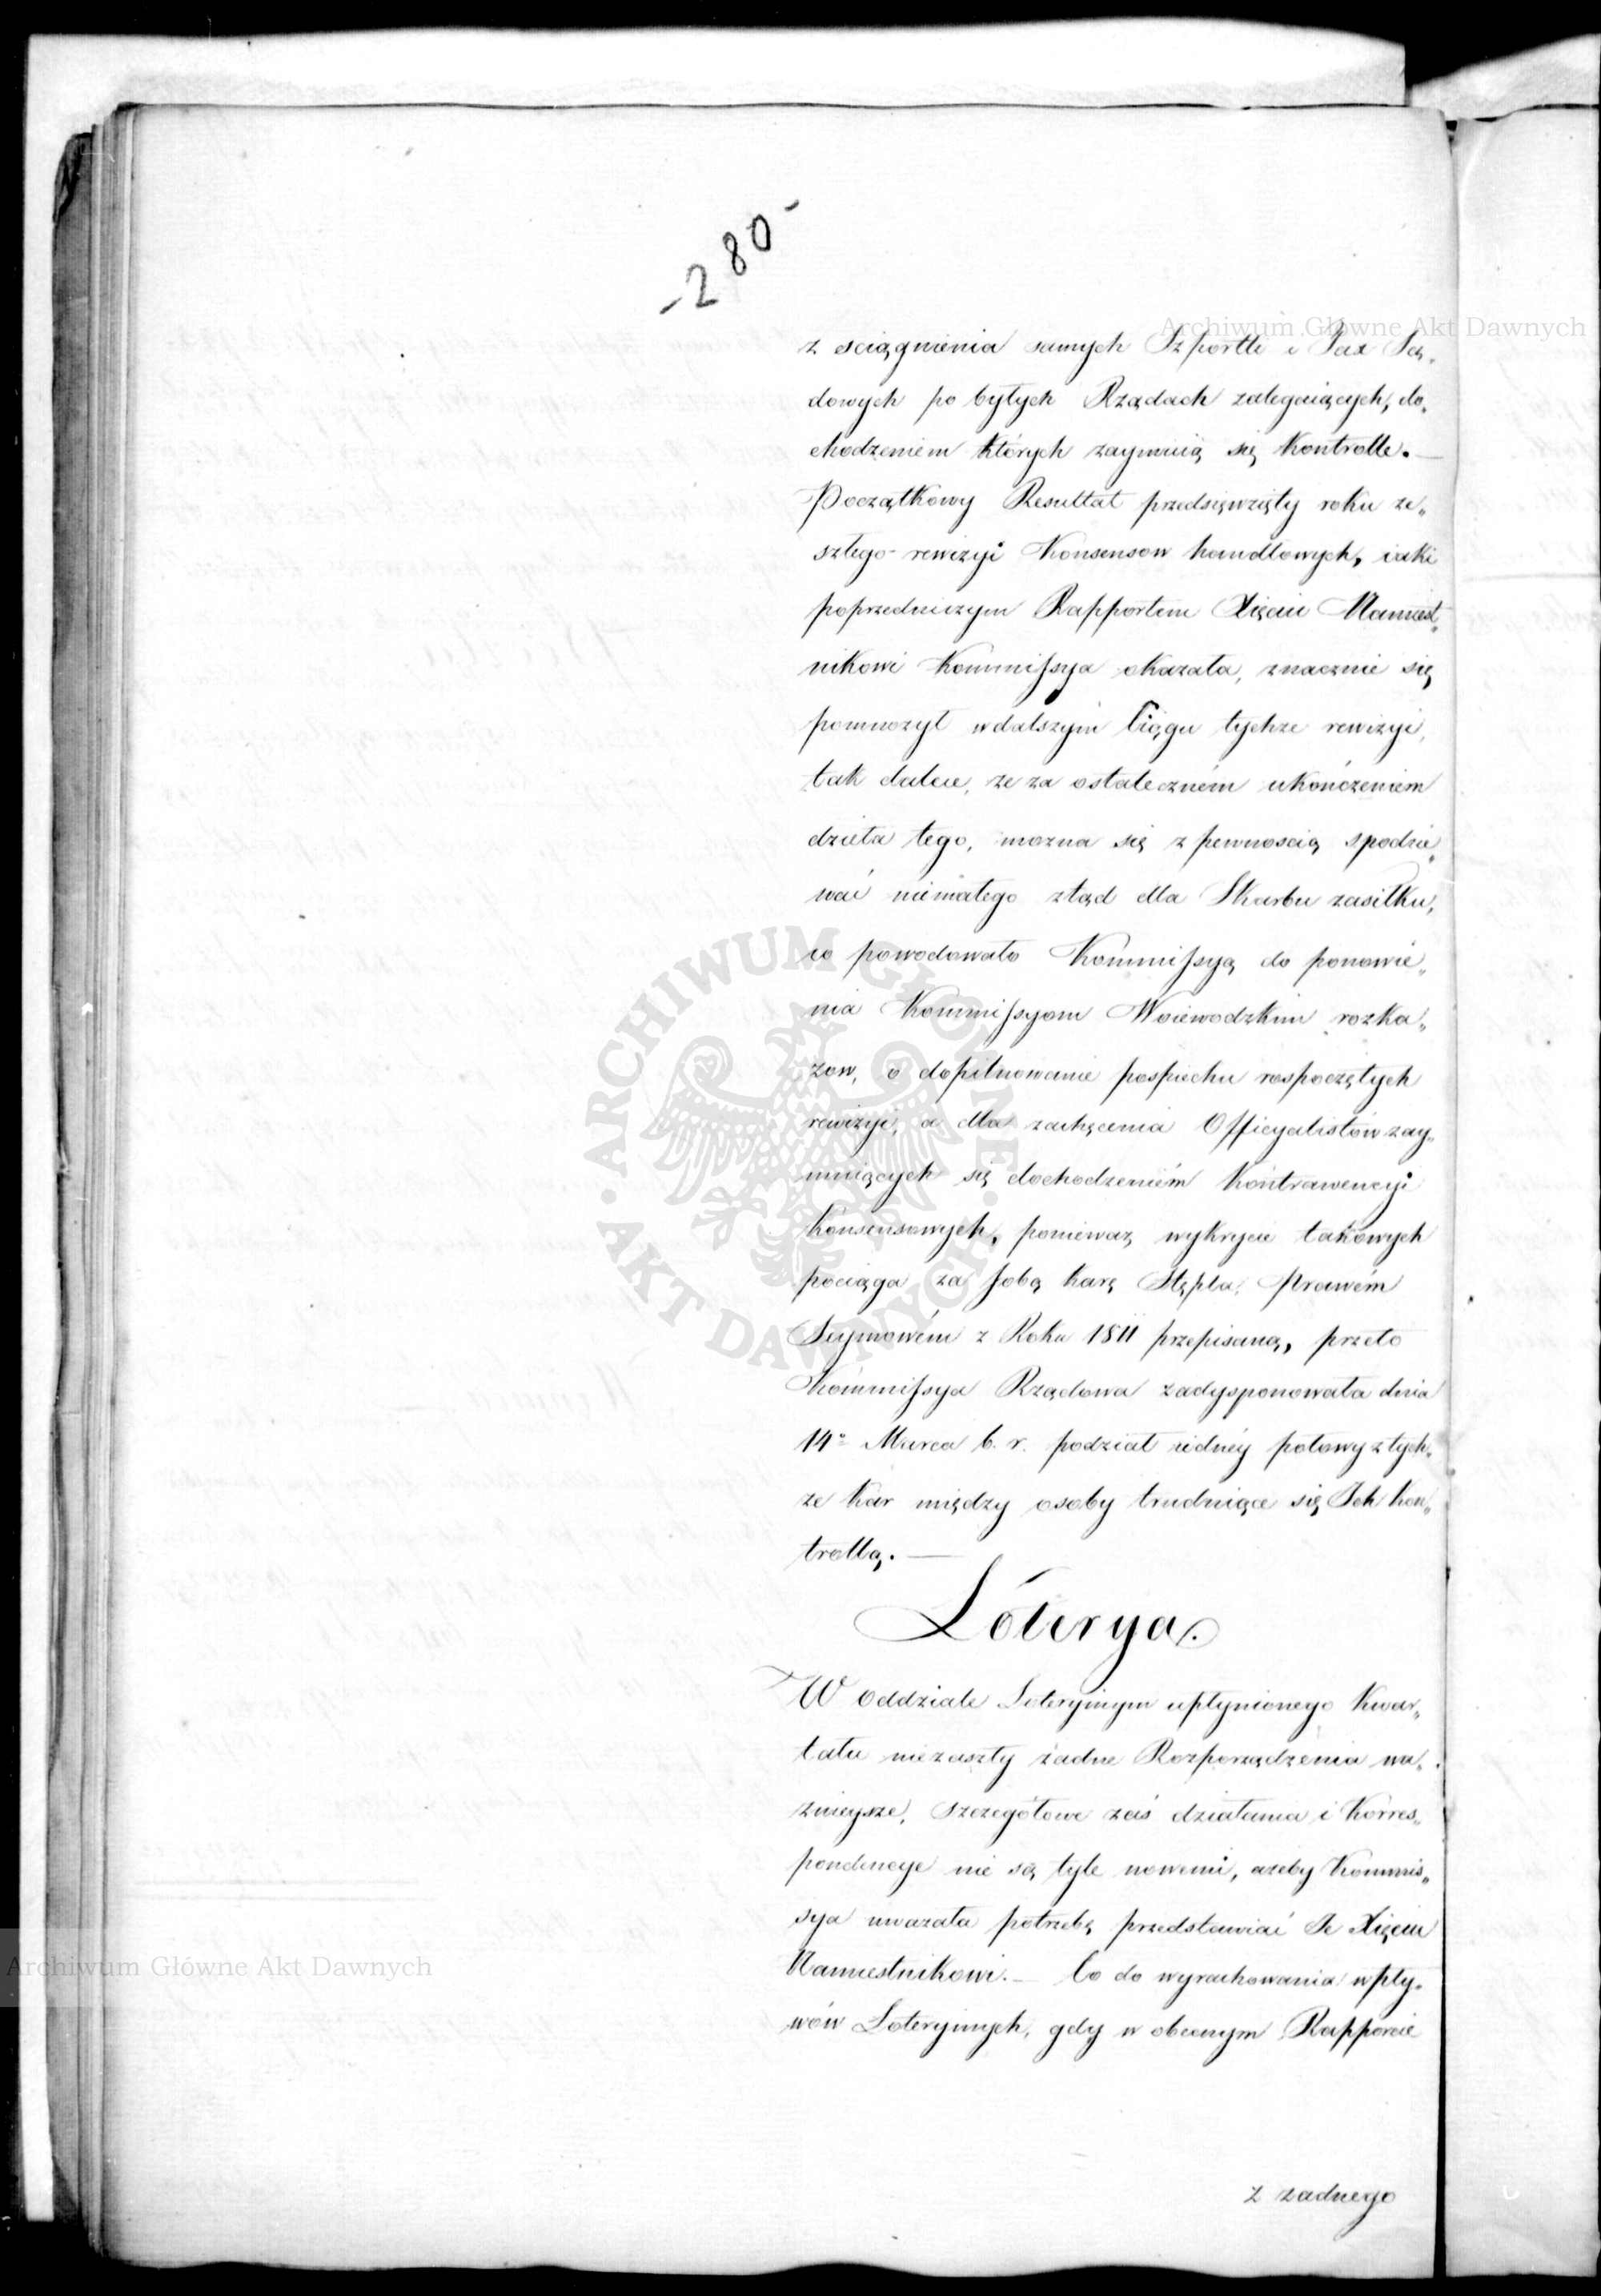 -280-
Archiwum Główne Akt Dawnych
z ściągnienia samych Szportli i Tax Są„
dowych po byłych Rządach zalegaiących, do„
chodzeniem których zaymuią się Kontrolle. —
Początkowy Resultat przedsięwzięty roku ze„
szłego rewizyi Konsensow handlowych, iaki
poprzedniczym Rapportem Xięciu Namiest„
nikowi Kommissya okazała, znacznie się
pomnożył w dalszym Ciągu tychże rewizyi,
tak dalece, że za ostatecznem ukończeniem
dzieła tego, mozna się z pewnoscią spodzie„
wać niemałego ztąd dla Skarbu zasiłku,
co powodowało Kommissyą do ponowie„
nia Kommissyom Woiewodzkim rozka„
zow, o dopilnowanie pospiechu rospoczętych
rewizyi, a dla zachęcenia Officyalistów zay„
muiących się dochodzeniém Kontrawencyi
Konsensowych, ponieważ wykrycie takowych
pociąga za sobą karę Stępla, Prawém
Seymowém z Roku 1811 przepisaną, przeto
Kommissya Rządowa zadysponowała dnia
14º Marca b. r. podział iednéy połowy z tych„
że Kar między osoby trudniące się Ich Kon„
trollą. —
Lóterya.
W Oddziale Loteryinym upłynionego Kwar„
tału niezaszły żadne Rozporządzenia wa„
żnieysze, szczegółowe zaś działania i Korres„
pondencye nie są tyle nowemi, ażeby Kommis„
sya uważała potrzebę przedstawiać Je Xięciu
Namiestnikowi. — Co do wyrachowania wpły„
wów Loteryinych, gdy w obecnym Rapporcie
z zadnego
ARCHIWUM GŁÓWNE · AKT DAWNYCH ·
Archiwum Główne Akt Dawnych